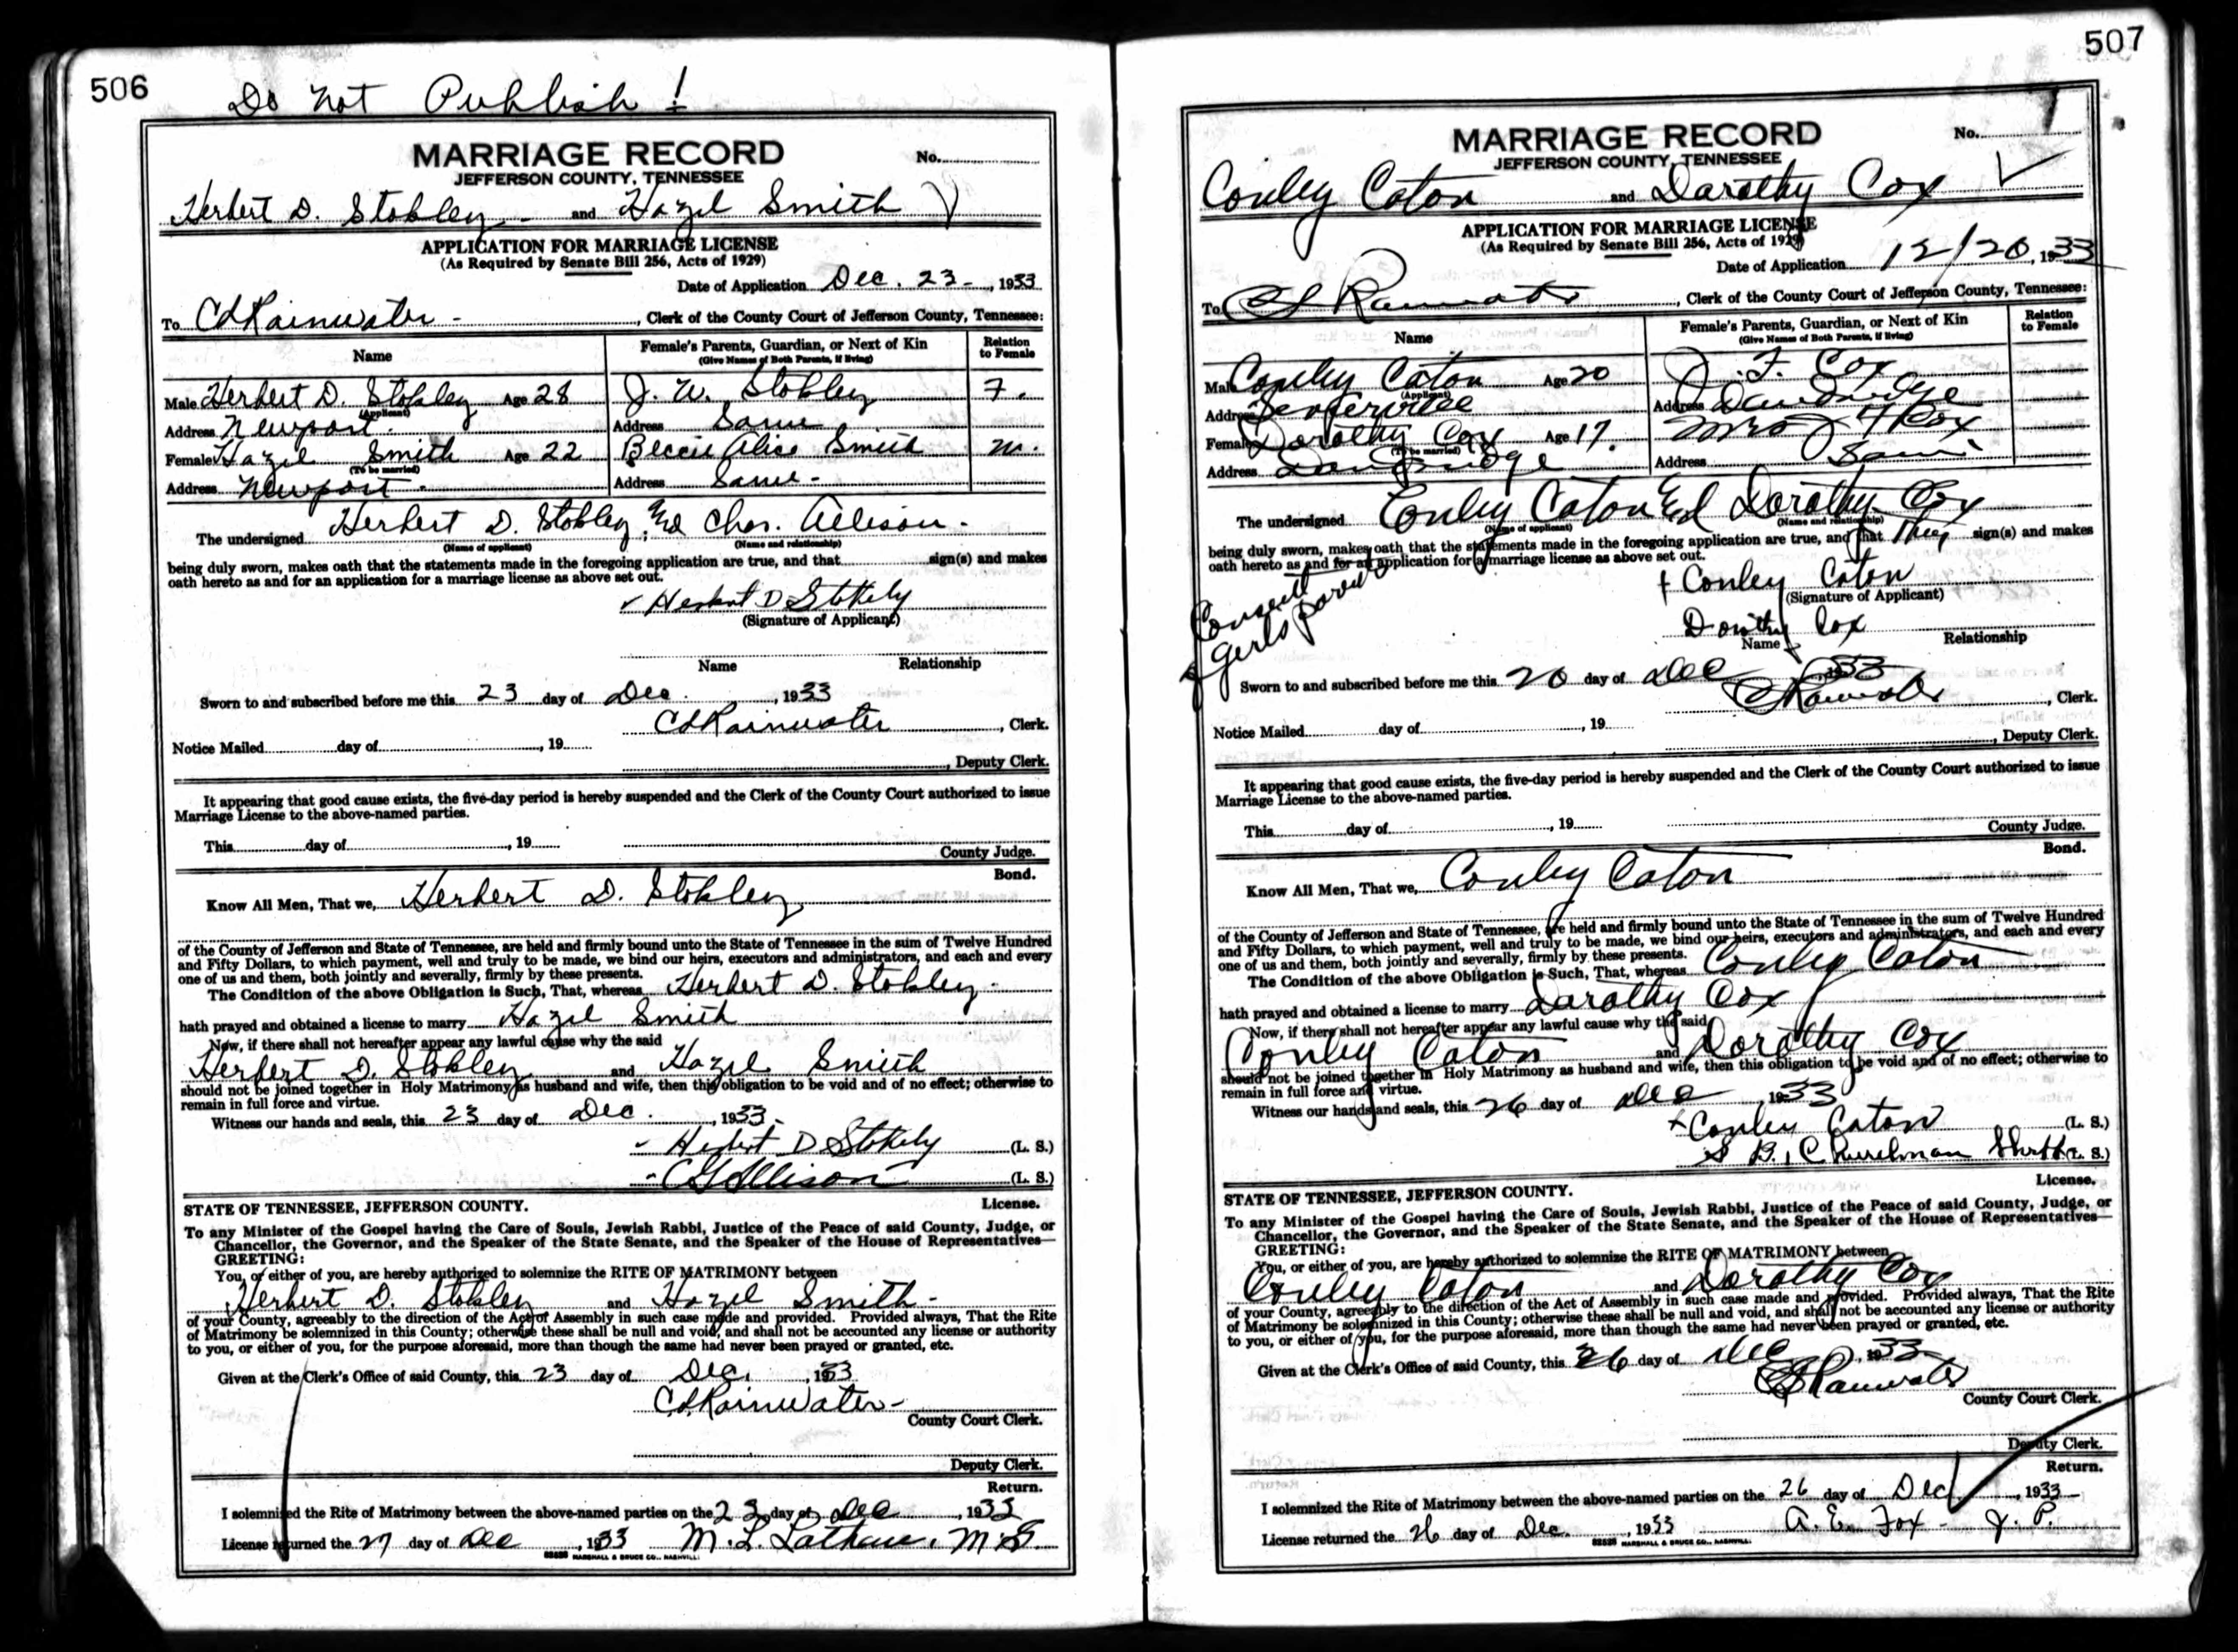 506
Do Not Publish !
MARRIAGE RECORD
No.
JEFFERSON COUNTY, TENNESSEE
Herbert D. Stokley - and Hazel Smith
APPLICATION FOR MARRIAGE LICENSE
(As Required by Senate Bill 256, Acts of 1929)
Date of Application Dec. 23 - , 1933
To CLRainwater - , Clerk of the County Court of Jefferson County, Tennessee:
Name
Female's Parents, Guardian, or Next of Kin
(Give Names of Both Parents, if living)
Relation to Female
Male Herbert D. Stokley Age 28 J. W. Stokley F.
(Applicant)
Address Newport. Address Same
Female Hazel Smith Age 22 Alice Smith M.
(To be married)
Address Newport - Address Same -
The undersigned Herbert D. Stokley, and Chas. Allison -
(Name of applicant) (Name and relationship)
being duly sworn, makes oath that the statements made in the foregoing application are true, and that sign(s) and makes
oath hereto as and for an application for a marriage license as above set out.
Herbert D Stokely
(Signature of Applicant)
Name Relationship
Sworn to and subscribed before me this 23 day of Dec. , 1933
CLRainwater , Clerk.
Notice Mailed day of , 19
, Deputy Clerk.
It appearing that good cause exists, the five-day period is hereby suspended and the Clerk of the County Court authorized to issue
Marriage License to the above-named parties.
This day of , 19
County Judge.
Bond.
Know All Men, That we, Herbert D. Stokley
of the County of Jefferson and State of Tennessee, are held and firmly bound unto the State of Tennessee in the sum of Twelve Hundred
and Fifty Dollars, to which payment, well and truly to be made, we bind our heirs, executors and administrators, and each and every
one of us and them, both jointly and severally, firmly by these presents.
The Condition of the above Obligation is Such, That, whereas Herbert D. Stokley -
hath prayed and obtained a license to marry Hazel Smith
Now, if there shall not hereafter appear any lawful cause why the said
Herbert D. Stokley and Hazel Smith
should not be joined together in Holy Matrimony as husband and wife, then this obligation to be void and of no effect; otherwise to
remain in full force and virtue.
Witness our hands and seals, this 23 day of Dec. , 1933 -
Herbert D Stokely (L. S.)
CGAllison (L. S.)
STATE OF TENNESSEE, JEFFERSON COUNTY. License.
To any Minister of the Gospel having the Care of Souls, Jewish Rabbi, Justice of the Peace of said County, Judge, or
Chancellor, the Governor, and the Speaker of the State Senate, and the Speaker of the House of Representatives—
GREETING:
You, or either of you, are hereby authorized to solemnize the RITE OF MATRIMONY between
Herbert D. Stokley and Hazel Smith -
of your County, agreeably to the direction of the Act of Assembly in such case made and provided. Provided always, That the Rite
of Matrimony be solemnized in this County; otherwise these shall be null and void, and shall not be accounted any license or authority
to you, or either of you, for the purpose aforesaid, more than though the same had never been prayed or granted, etc.
Given at the Clerk's Office of said County, this 23 day of Dec. , 1933
CLRainwater -
County Court Clerk.
Deputy Clerk.
Return.
I solemnized the Rite of Matrimony between the above-named parties on the 23 day of Dec , 1933
License returned the 27 day of Dec , 1933 M. L. M G
MARSHALL & BRUCE CO., NASHVILLE
507
MARRIAGE RECORD
No.
JEFFERSON COUNTY, TENNESSEE
Conley Caton and Dorothy Cox
APPLICATION FOR MARRIAGE LICENSE
(As Required by Senate Bill 256, Acts of 1929)
Date of Application 12/26 , 1933
To CLRainwater , Clerk of the County Court of Jefferson County, Tennessee:
Name
Female's Parents, Guardian, or Next of Kin
(Give Names of Both Parents, if living)
Relation to Female
Male Conley Caton Age 20 J. F. Cox
(Applicant)
Address Sevierville Address Dandridge
Female Dorothy Cox Age 17. Mrs J F Cox
(To be married)
Address Dandridge Address Same
The undersigned Conley Caton and Dorothy Cox
(Name of applicant) (Name and relationship)
being duly sworn, makes oath that the statements made in the foregoing application are true, and that They sign(s) and makes
oath hereto as and for an application for a marriage license as above set out.
Consent of girls parents
Conley Caton
(Signature of Applicant)
Dorothy Cox
Name Relationship
Sworn to and subscribed before me this 26 day of Dec 1933
CLRainwater , Clerk.
Notice Mailed day of , 19
, Deputy Clerk.
It appearing that good cause exists, the five-day period is hereby suspended and the Clerk of the County Court authorized to issue
Marriage License to the above-named parties.
This day of , 19
County Judge.
Bond.
Know All Men, That we, Conley Caton
of the County of Jefferson and State of Tennessee, are held and firmly bound unto the State of Tennessee in the sum of Twelve Hundred
and Fifty Dollars, to which payment, well and truly to be made, we bind our heirs, executors and administrators, and each and every
one of us and them, both jointly and severally, firmly by these presents.
The Condition of the above Obligation is Such, That, whereas Conley Caton
hath prayed and obtained a license to marry Dorothy Cox
Now, if there shall not hereafter appear any lawful cause why the said
Conley Caton and Dorothy Cox
should not be joined together in Holy Matrimony as husband and wife, then this obligation to be void and of no effect; otherwise to
remain in full force and virtue.
Witness our hands and seals, this 26 day of Dec , 1933
Conley Caton (L. S.)
S B. Churchman Shrff (L. S.)
License.
STATE OF TENNESSEE, JEFFERSON COUNTY.
To any Minister of the Gospel having the Care of Souls, Jewish Rabbi, Justice of the Peace of said County, Judge, or
Chancellor, the Governor, and the Speaker of the State Senate, and the Speaker of the House of Representatives—
GREETING:
You, or either of you, are hereby authorized to solemnize the RITE OF MATRIMONY between
Conley Caton and Dorothy Cox
of your County, agreeably to the direction of the Act of Assembly in such case made and provided. Provided always, That the Rite
of Matrimony be solemnized in this County; otherwise these shall be null and void, and shall not be accounted any license or authority
to you, or either of you, for the purpose aforesaid, more than though the same had never been prayed or granted, etc.
Given at the Clerk's Office of said County, this 26 day of Dec , 1933
CLRainwater
County Court Clerk.
Deputy Clerk.
Return.
I solemnized the Rite of Matrimony between the above-named parties on the 26 day of Dec , 1933
License returned the 26 day of Dec. , 1933 A. E. Fox - J. P.
MARSHALL & BRUCE CO., NASHVILLE